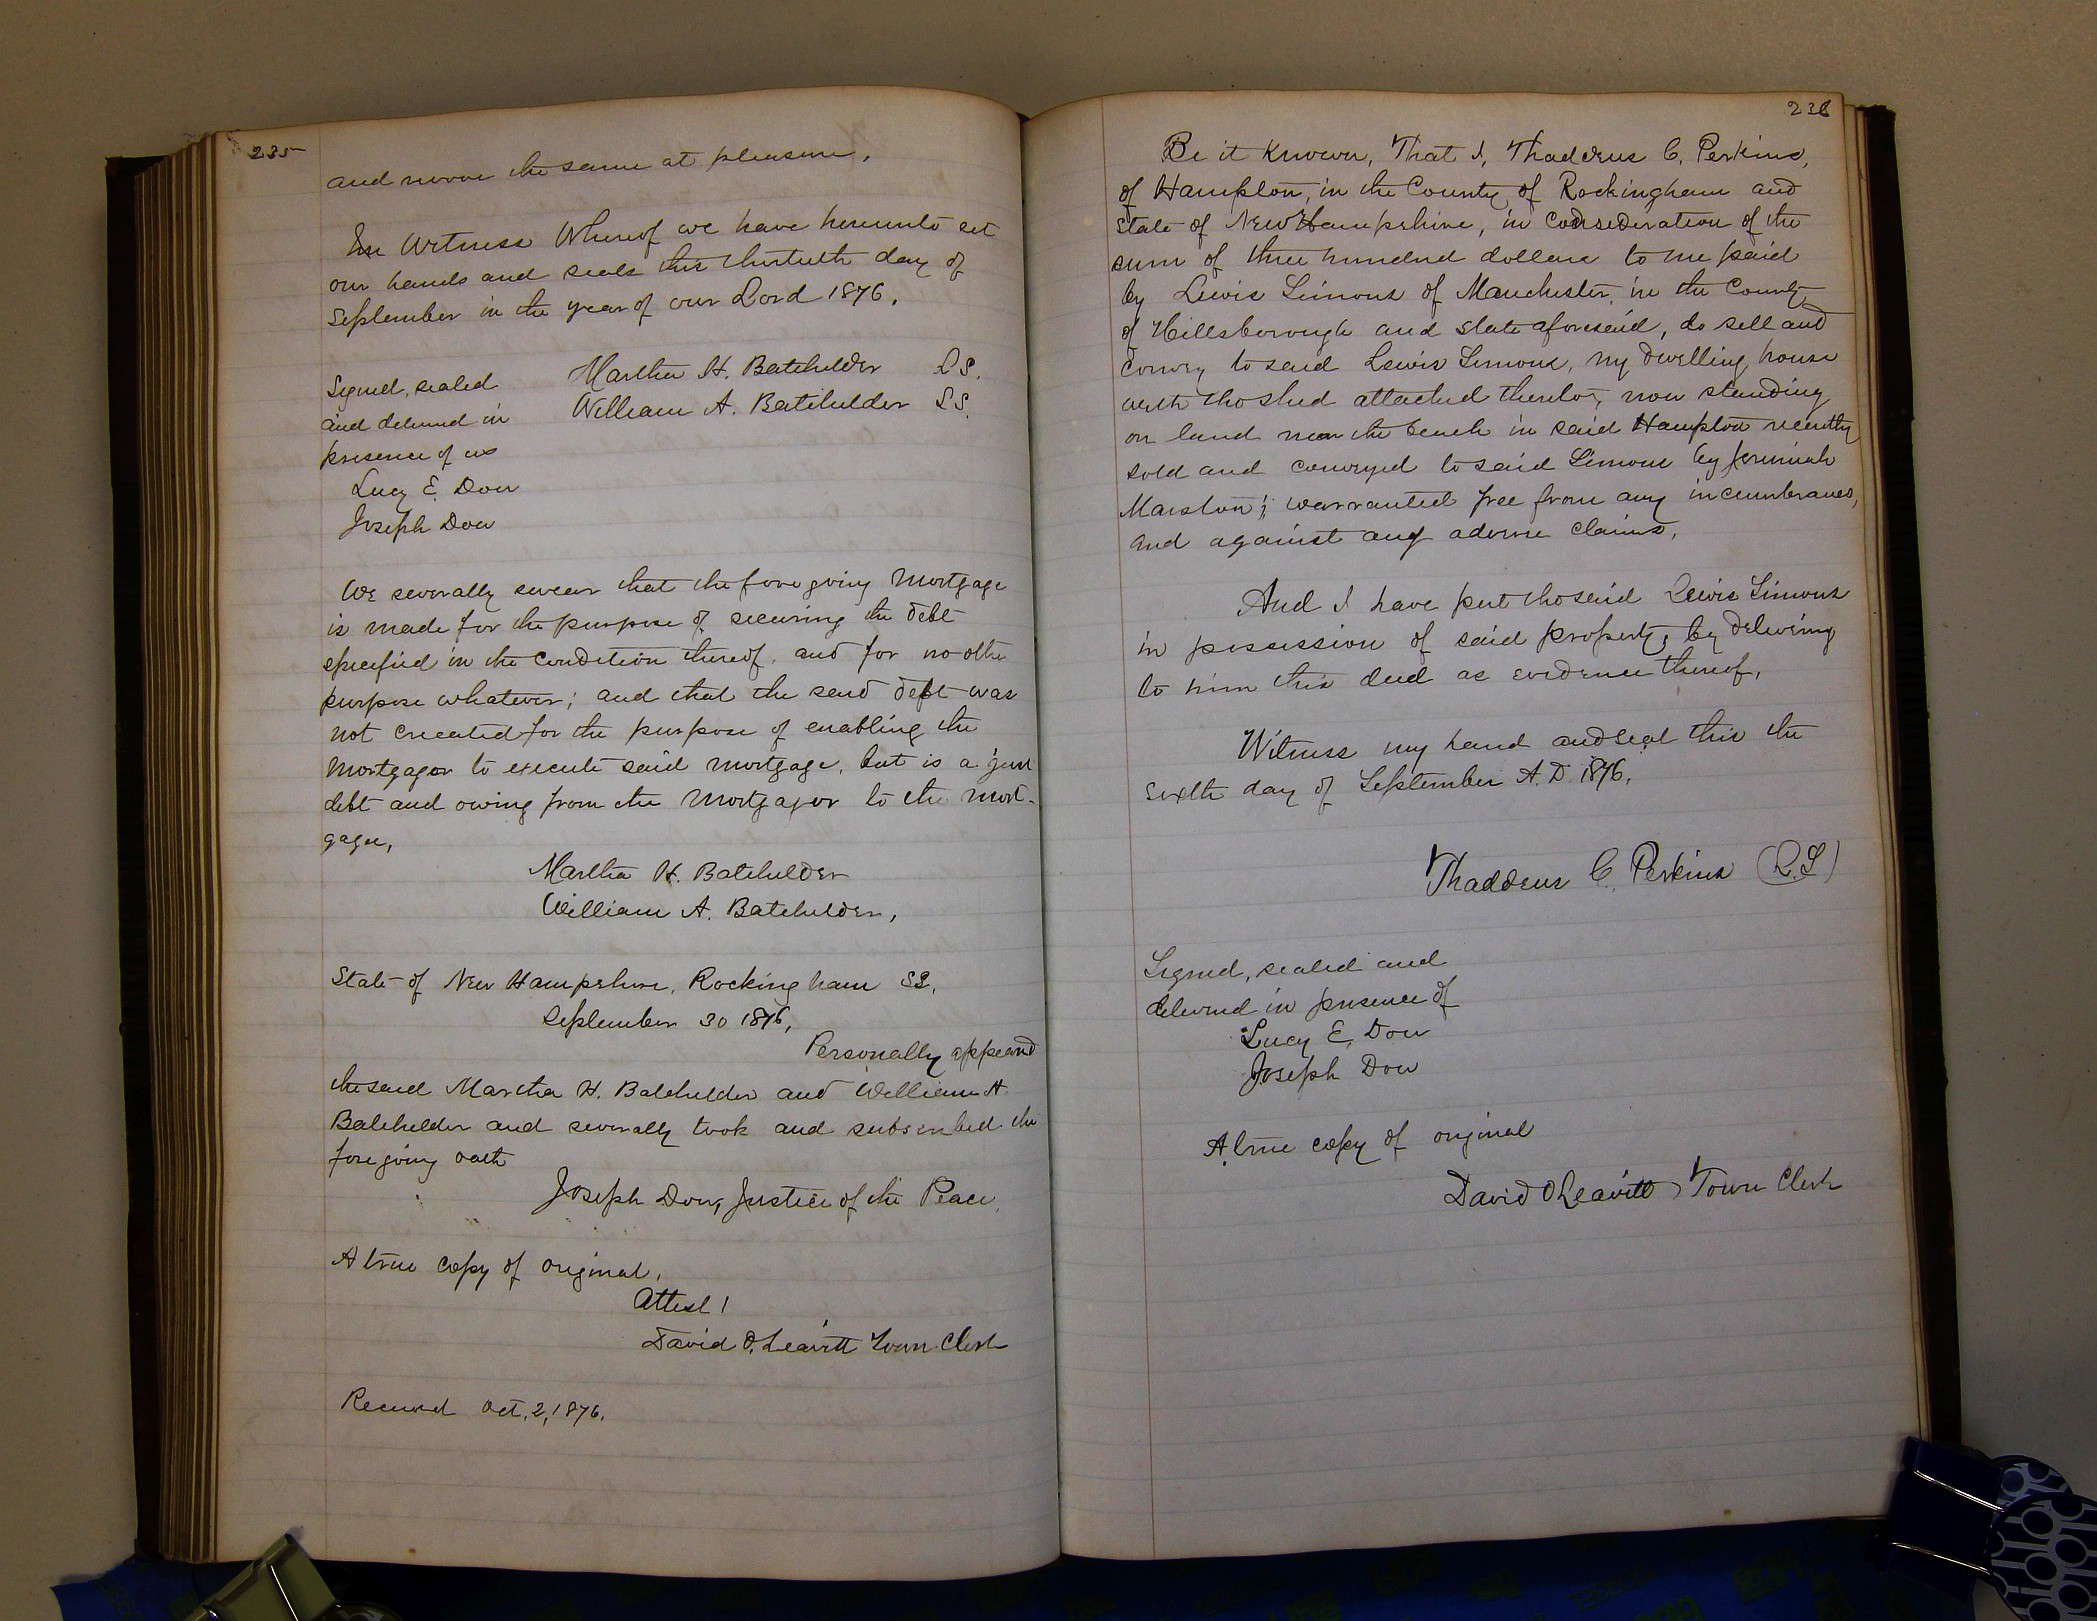 235
and move the same at pleasure.
In Witness Whereof we have hereunto set
our hands and seals this thirtieth day of
September in the year of our Lord 1876.
Signed, sealed
and delivered in
presence of us
Lucy E. Dow
Joseph Dow
Martha H. Batchelder L S.
William A. Batchelder L S.
We severally swear that the foregoing Mortgage
is made for the purpose of securing the debt
specified in the condition thereof, and for no other
purpose whatever; and that the said debt was
not created for the purpose of enabling the
Mortgagor to execute said mortgage, but is a just
debt and owing from the Mortgagor to the mort-
gagee,
Martha H. Batchelder
William A. Batchelder,
State of New Hampshire, Rockingham SS.
September 30 1876,
Personally appeared
the said Martha H. Batchelder and William A
Batchelder and severally took and subscribed the
foregoing oath
Joseph Dow, Justice of the Peace.
A true copy of original,
Attest!
David O. Leavitt Town Clerk
Received Oct. 2, 1876.
236
Be it Known, That I, Thaddeus C. Perkins,
of Hampton, in the County of Rockingham and
State of New Hampshire, in consideration of the
sum of three hundred dollars to me paid
by Lewis Simons of Manchester, in the County
of Hillsborough and state aforesaid, do sell and
convey to said Lewis Simons, my dwelling house
with the shed attached thereto, now standing
on land near the beach in said Hampton recently
sold and conveyed to said Simons by Jeremiah
Marston; warranted free from any incumbrances,
and against any adverse claims.
And I have put the said Lewis Simons
in possession of said property, by delivering
to him this deed as evidence thereof.
Witness my hand and seal this the
sixth day of September A.D. 1876.
Thaddeus C. Perkins (L.S)
Signed, sealed and
delivered in presence of
Lucy E. Dow
Joseph Dow
A true copy of original
David O Leavitt, Town Clerk